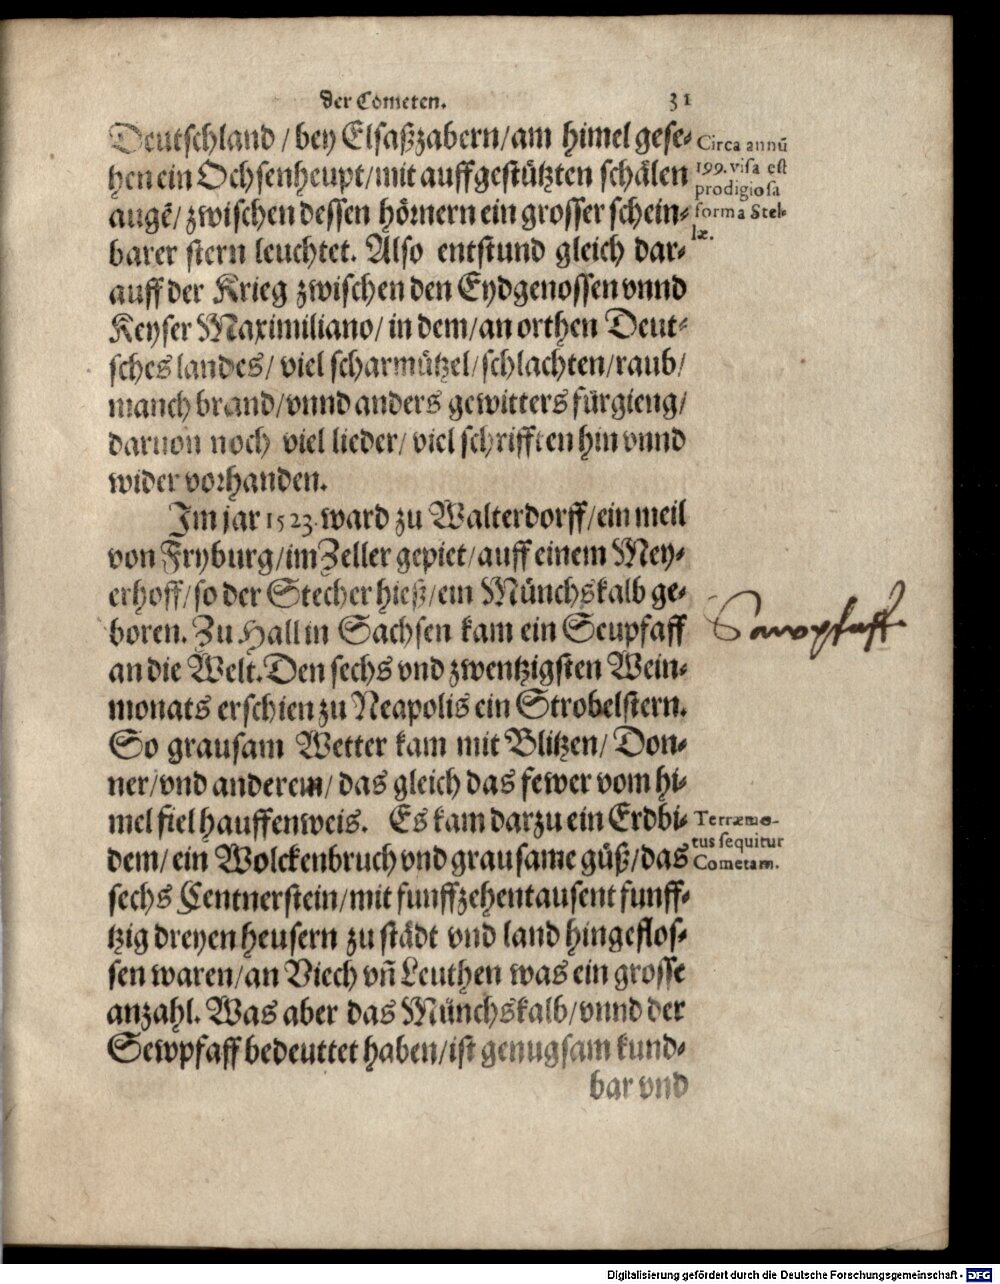 der Cometen. 31
Deutschland / bey Elsaßzabern/am himel gese-
hen ein Ochsenheupt/mit auffgestützten schälen
augẽ/ zwischen dessen hörnern ein grosser schein-
barer stern leuchtet. Also entstund gleich dar-
auff der Krieg zwischen den Eydgenossen vnnd
Keyser Maximiliano/ in dem/an orthen Deut-
sches landes/ viel scharmützel/schlachten/raub/
manch brand/vnnd anders gewitters fürgieng/
daruon noch viel lieder/ viel schrifften hin vnnd
wider vorhanden.
Im jar 1523. ward zu Walterdorff/ein meil
von Fryburg/im Zeller gepiet/auff einem Mey-
erhoff/so der Stecher hieß/ein Münchskalb ge-
boren. Zu Hall in Sachsen kam ein Seupfaff
an die Welt. Den sechs vnd zwentzigsten Wein-
monats erschien zu Neapolis ein Strobelstern.
So grausam Wetter kam mit Blitzen/ Don-
ner/vnd anderem/ das gleich das fewer vom hi-
mel fiel hauffenweis. Es kam darzu ein Erdbi-
dem/ ein Wolckenbruch vnd grausame güß/das
sechs Centnerstein/mit funffzehentausent funff-
tzig dreyen heusern zu städt vnd land hingeflos-
sen waren/an Viech vñ Leuthen was ein grosse
anzahl. Was aber das Münchskalb/vnnd der
Sewpfaff bedeuttet haben/ist genugsam kund-
bar vnd
Circa annũ
199. visa est
prodigiosa
forma Stel-
læ.
Sawpfaff
Terræmo-
tus sequitur
Cometam.
Digitalisierung gefördert durch die Deutsche Forschungsgemeinschaft - DFG